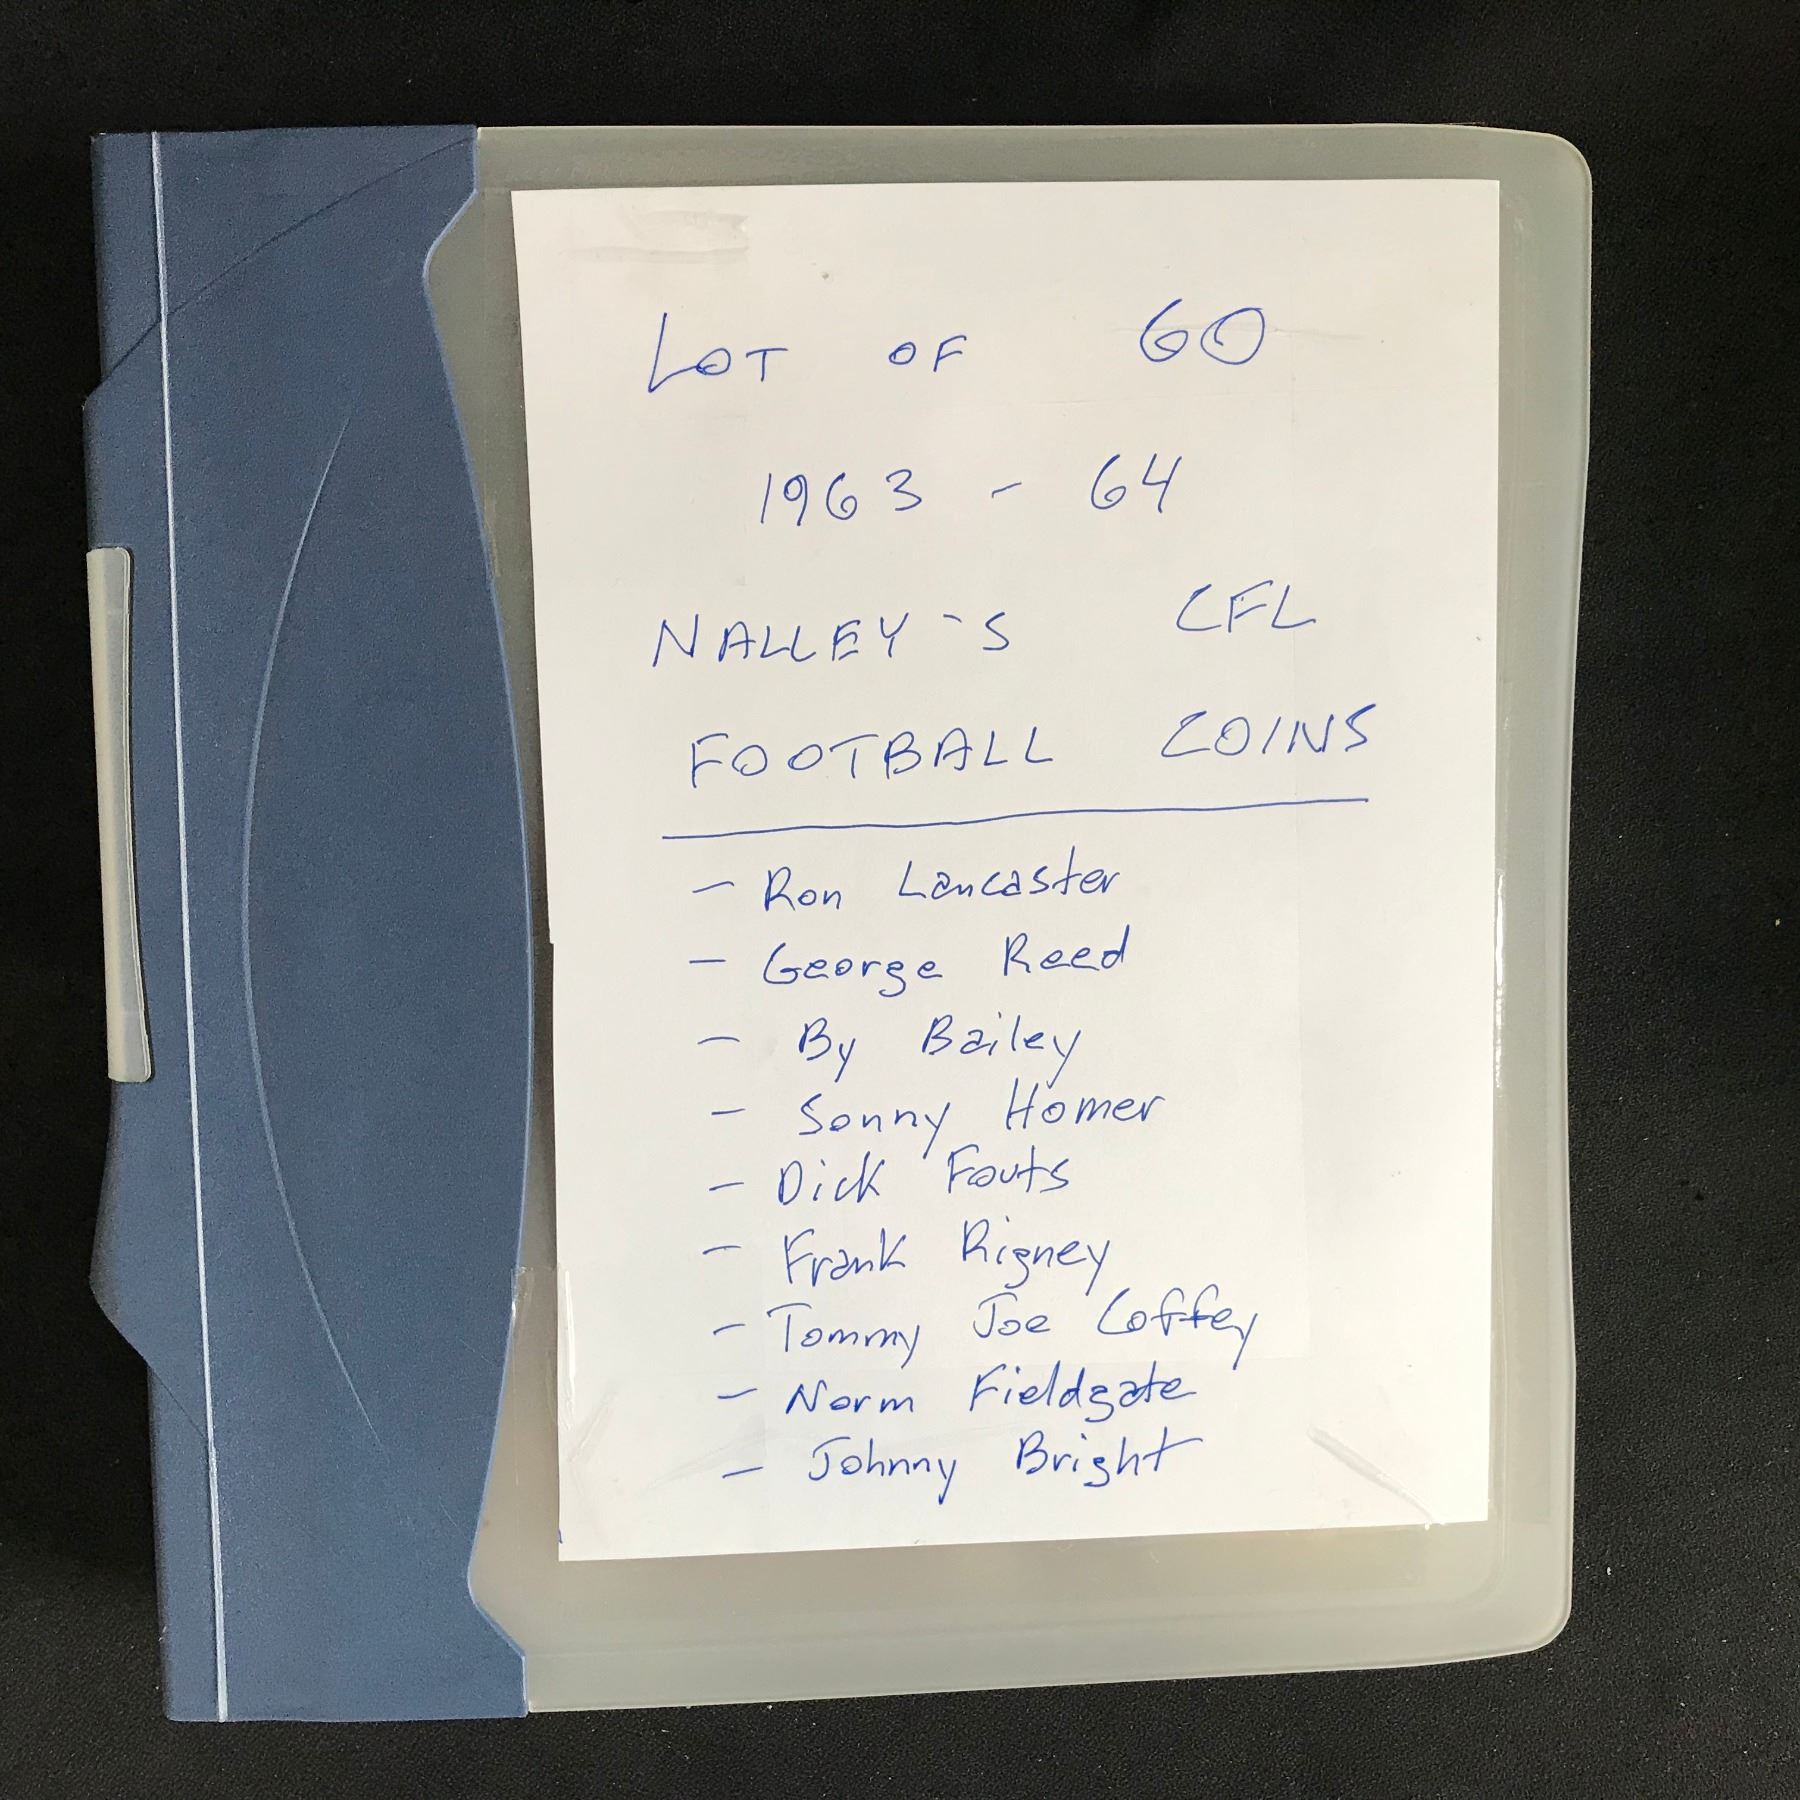 LOT OF 60
1963 - 64
NALLEY'S CFL
FOOTBALL COINS
- Ron Lancaster
- George Reed
- By Bailey
- Sonny Homer
- Dick Fouts
- Frank Rigney
- Tommy Joe Coffey
- Norm Fieldgate
- Johnny Bright